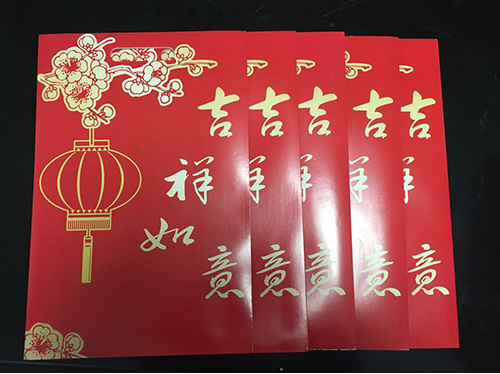 吉祥如意
吉祥意
吉祥意
吉祥意
吉祥意